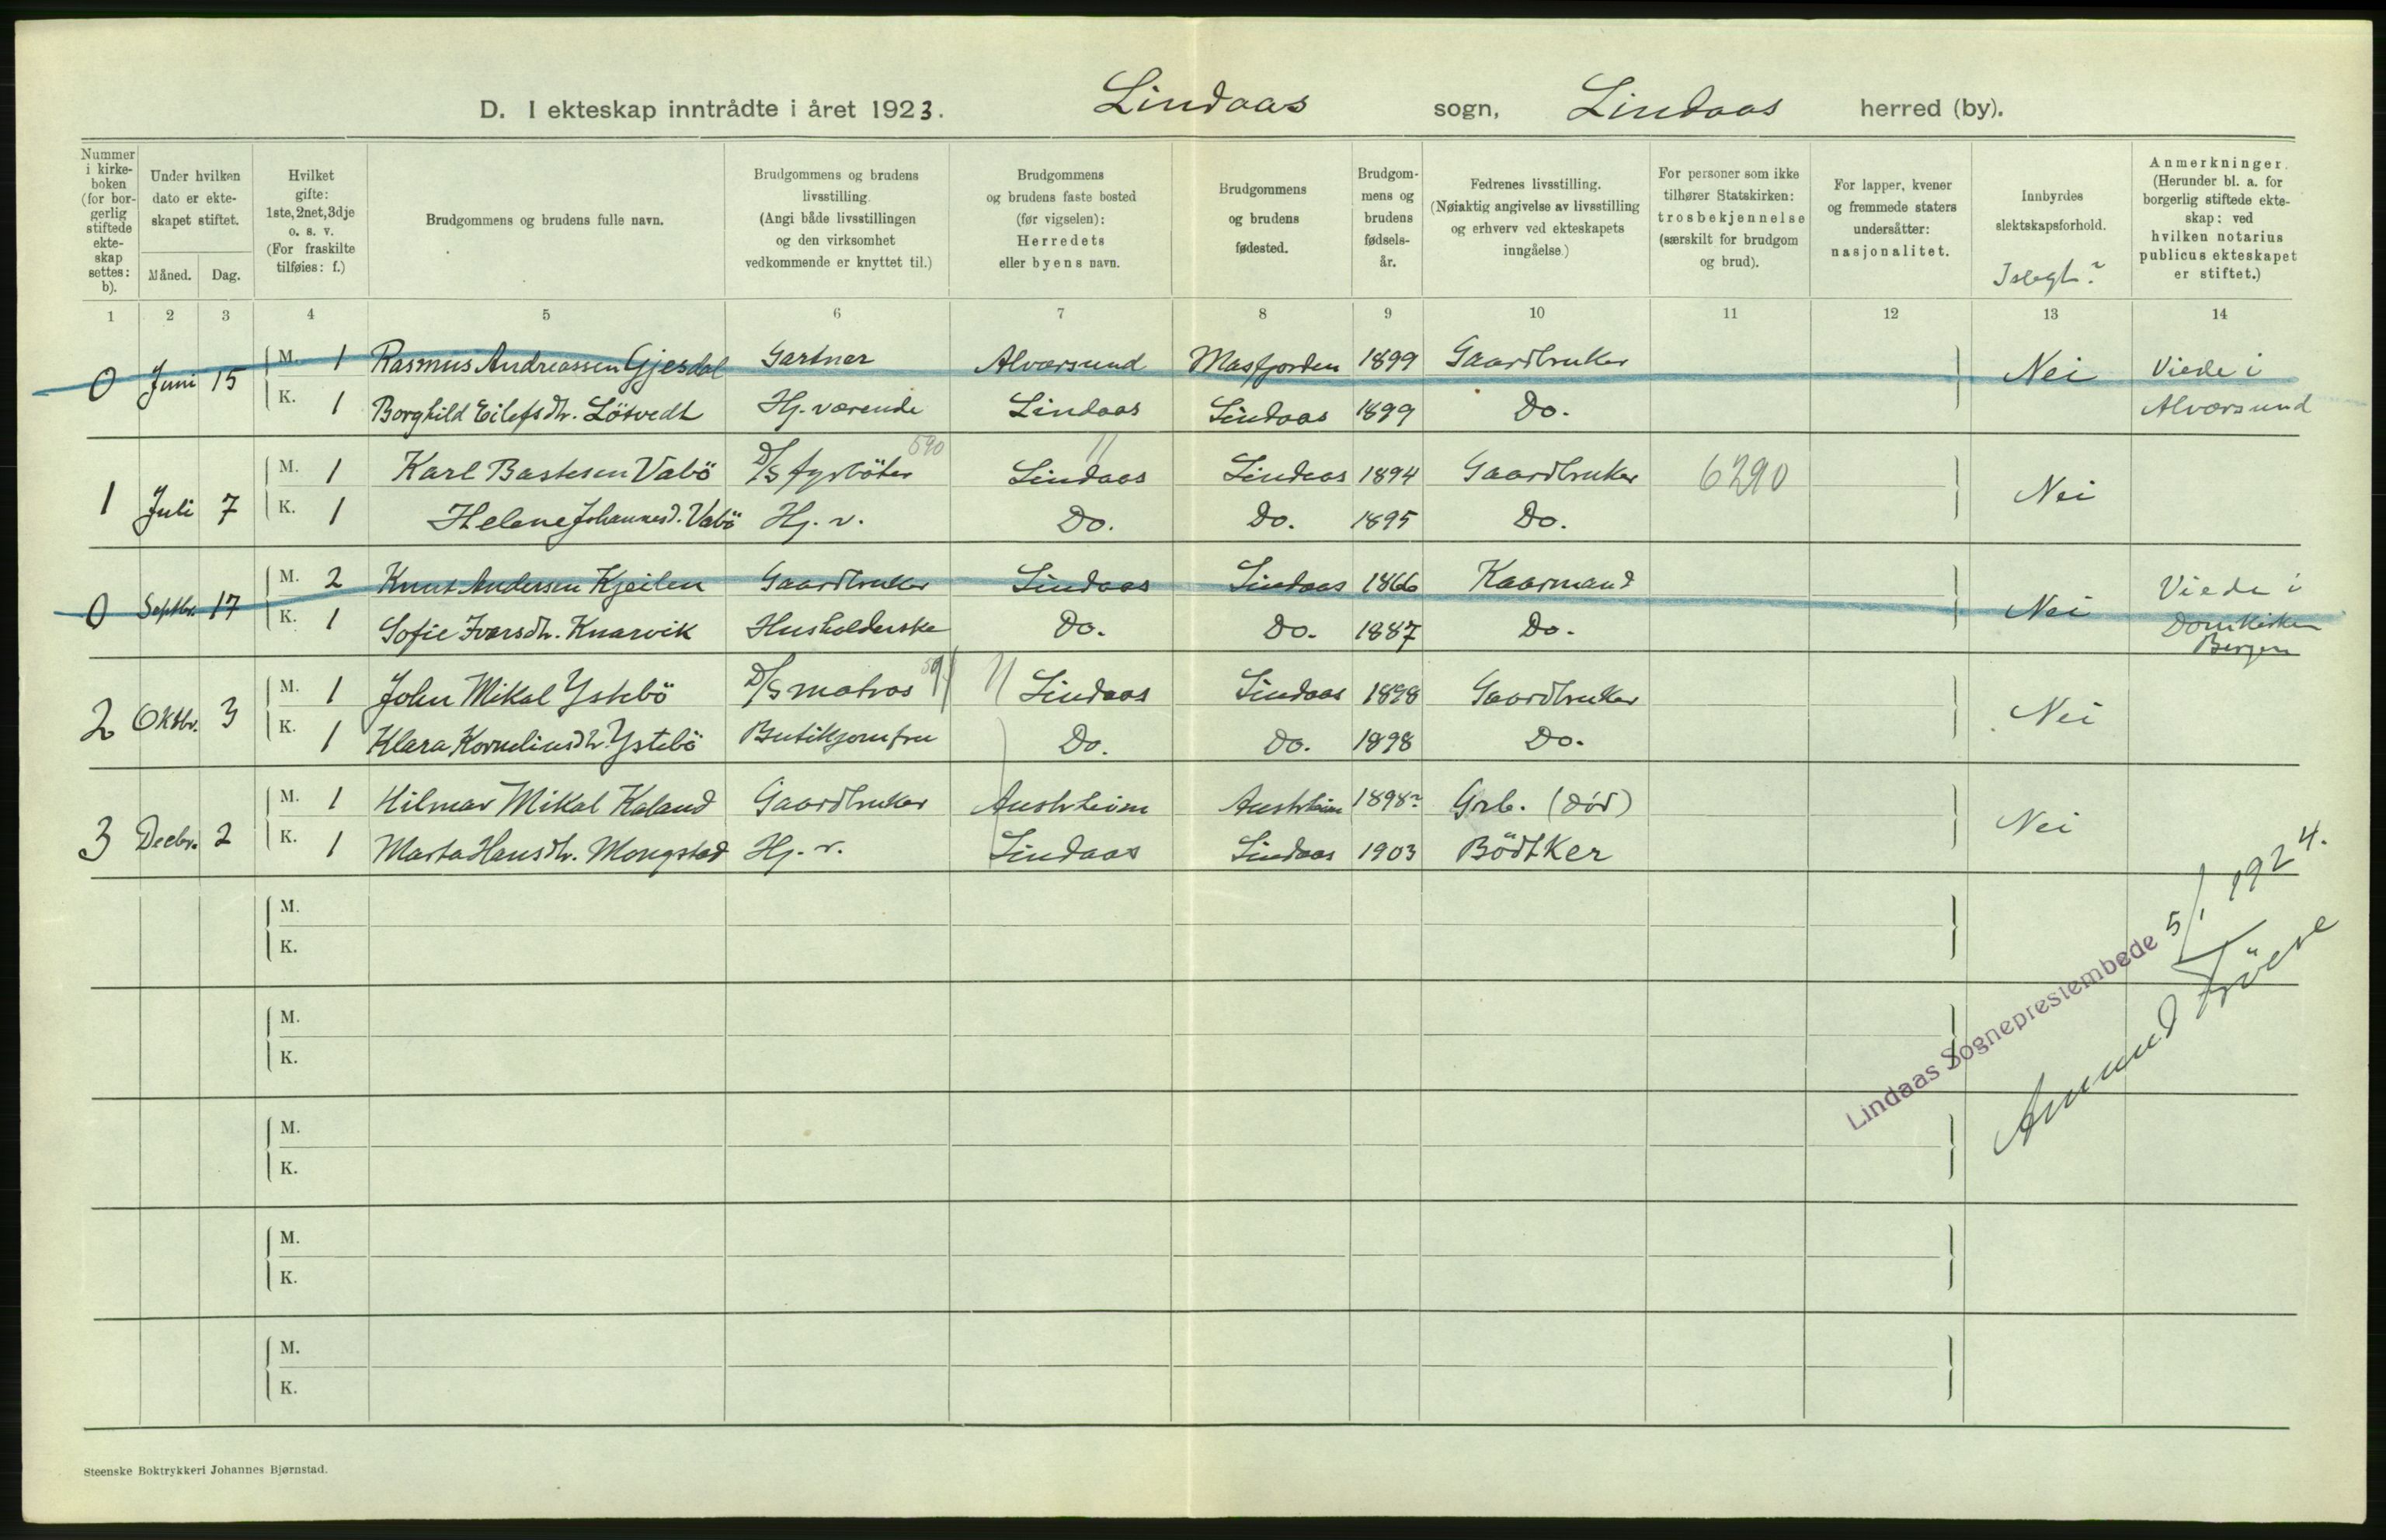 D. I ekteskap inntrådte i året 1923. Lindaas sogn, Lindaas herred (by).
Nummer i kirke- boken (for bor- gerlig stiftede ekte- skap settes: b).
Under hvilken dato er ekte- skapet stiftet.
Måned. Dag.
Hvilket gifte: 1ste, 2net, 3dje o. s. v. (For fraskilte tilføies: f.)
Brudgommens og brudens fulle navn.
Brudgommens og brudens livsstilling. (Angi både livsstillingen og den virksomhet vedkommende er knyttet til.)
Brudgommens og brudens faste bosted (før vigselen): Herredets eller byens navn.
Brudgommens og brudens fødested.
Brudgom- mens og brudens fødsels- år.
Fedrenes livsstilling. (Nøiaktig angivelse av livsstilling og erhverv ved ekteskapets inngåelse.)
For personer som ikke tilhører Statskirken: trosbekjennelse (særskilt for brudgom og brud).
For lapper, kvener og fremmede staters undersåtter: nasjonalitet.
Innbyrdes slektskapsforhold.
Anmerkninger. (Herunder bl. a. for borgerlig stiftede ekte- skap: ved hvilken notarius publicus ekteskapet er stiftet.)
1 2 3 4 5 6 7 8 9 10 11 12 13 14
0 Juni 15 M. 1 Rasmus Andreassen Gjesdal Gartner Alversund Masfjorden 1899 Gaardbruker Nei Viede i
K. 1 Borghild Eilefsdtr. Lötvedt Hj. værende Lindaas Lindaas 1899 Do. Alversund
590
1 Juli 7 M. 1 Karl Bastesen Vabö D/S fyrböter Lindaas Lindaas 1894 Gaardbruker 6290 Nei
K. 1 Helene Johannesd. Vabö Hj. v. Do. Do. 1895 Do.
0 Septbr. 17 M. 2 Knut Andersen Kjeilen Gaardbruker Lindaas Lindaas 1866 Kaarmand Nei Viede i
K. 1 Sofie Ivarsdtr. Knarvik Husholderske Do. Do. 1887 Do. Domkirken
Bergen
2 Oktbr. 3 M. 1 John Mikal Ystebö D/S matros Lindaas Lindaas 1898 Gaardbruker Nei
K. 1 Klara Korneliusdtr. Ystebö Butikjomfru Do. Do. 1898 Do.
3 Decbr. 2 M. 1 Hilmar Mikal Kaland Gaardbruker Austrheim Austrheim 1898 Grb. (död) Nei
K. 1 Marta Hansdtr. Mongstad Hj. v. Lindaas Lindaas 1903 Bödtker
M.
K.
M.
K.
M.
K.
M.
K.
M.
K.
Lindaas Sogneprestembede 5/1 1924.
Steenske Boktrykkeri Johannes Bjørnstad.